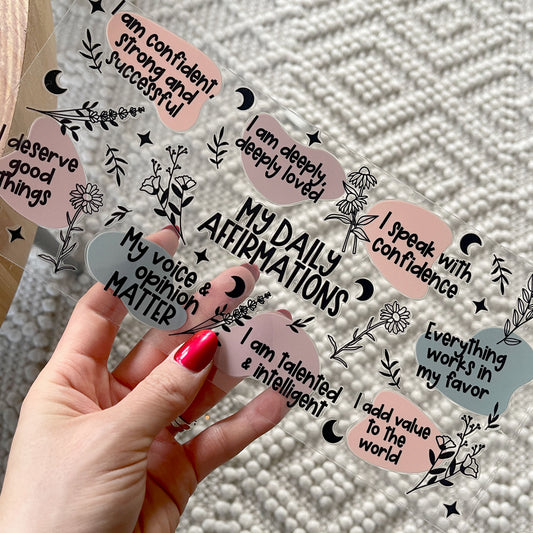 I am confident,
strong and
successful
I deserve
good
things
I am deeply,
deeply loved
My voice &
opinion
MATTER
MY DAILY
AFFIRMATIONS
I speak with
confidence
I am talented
& intelligent
Everything
works in
my favor
I add value
to the
world